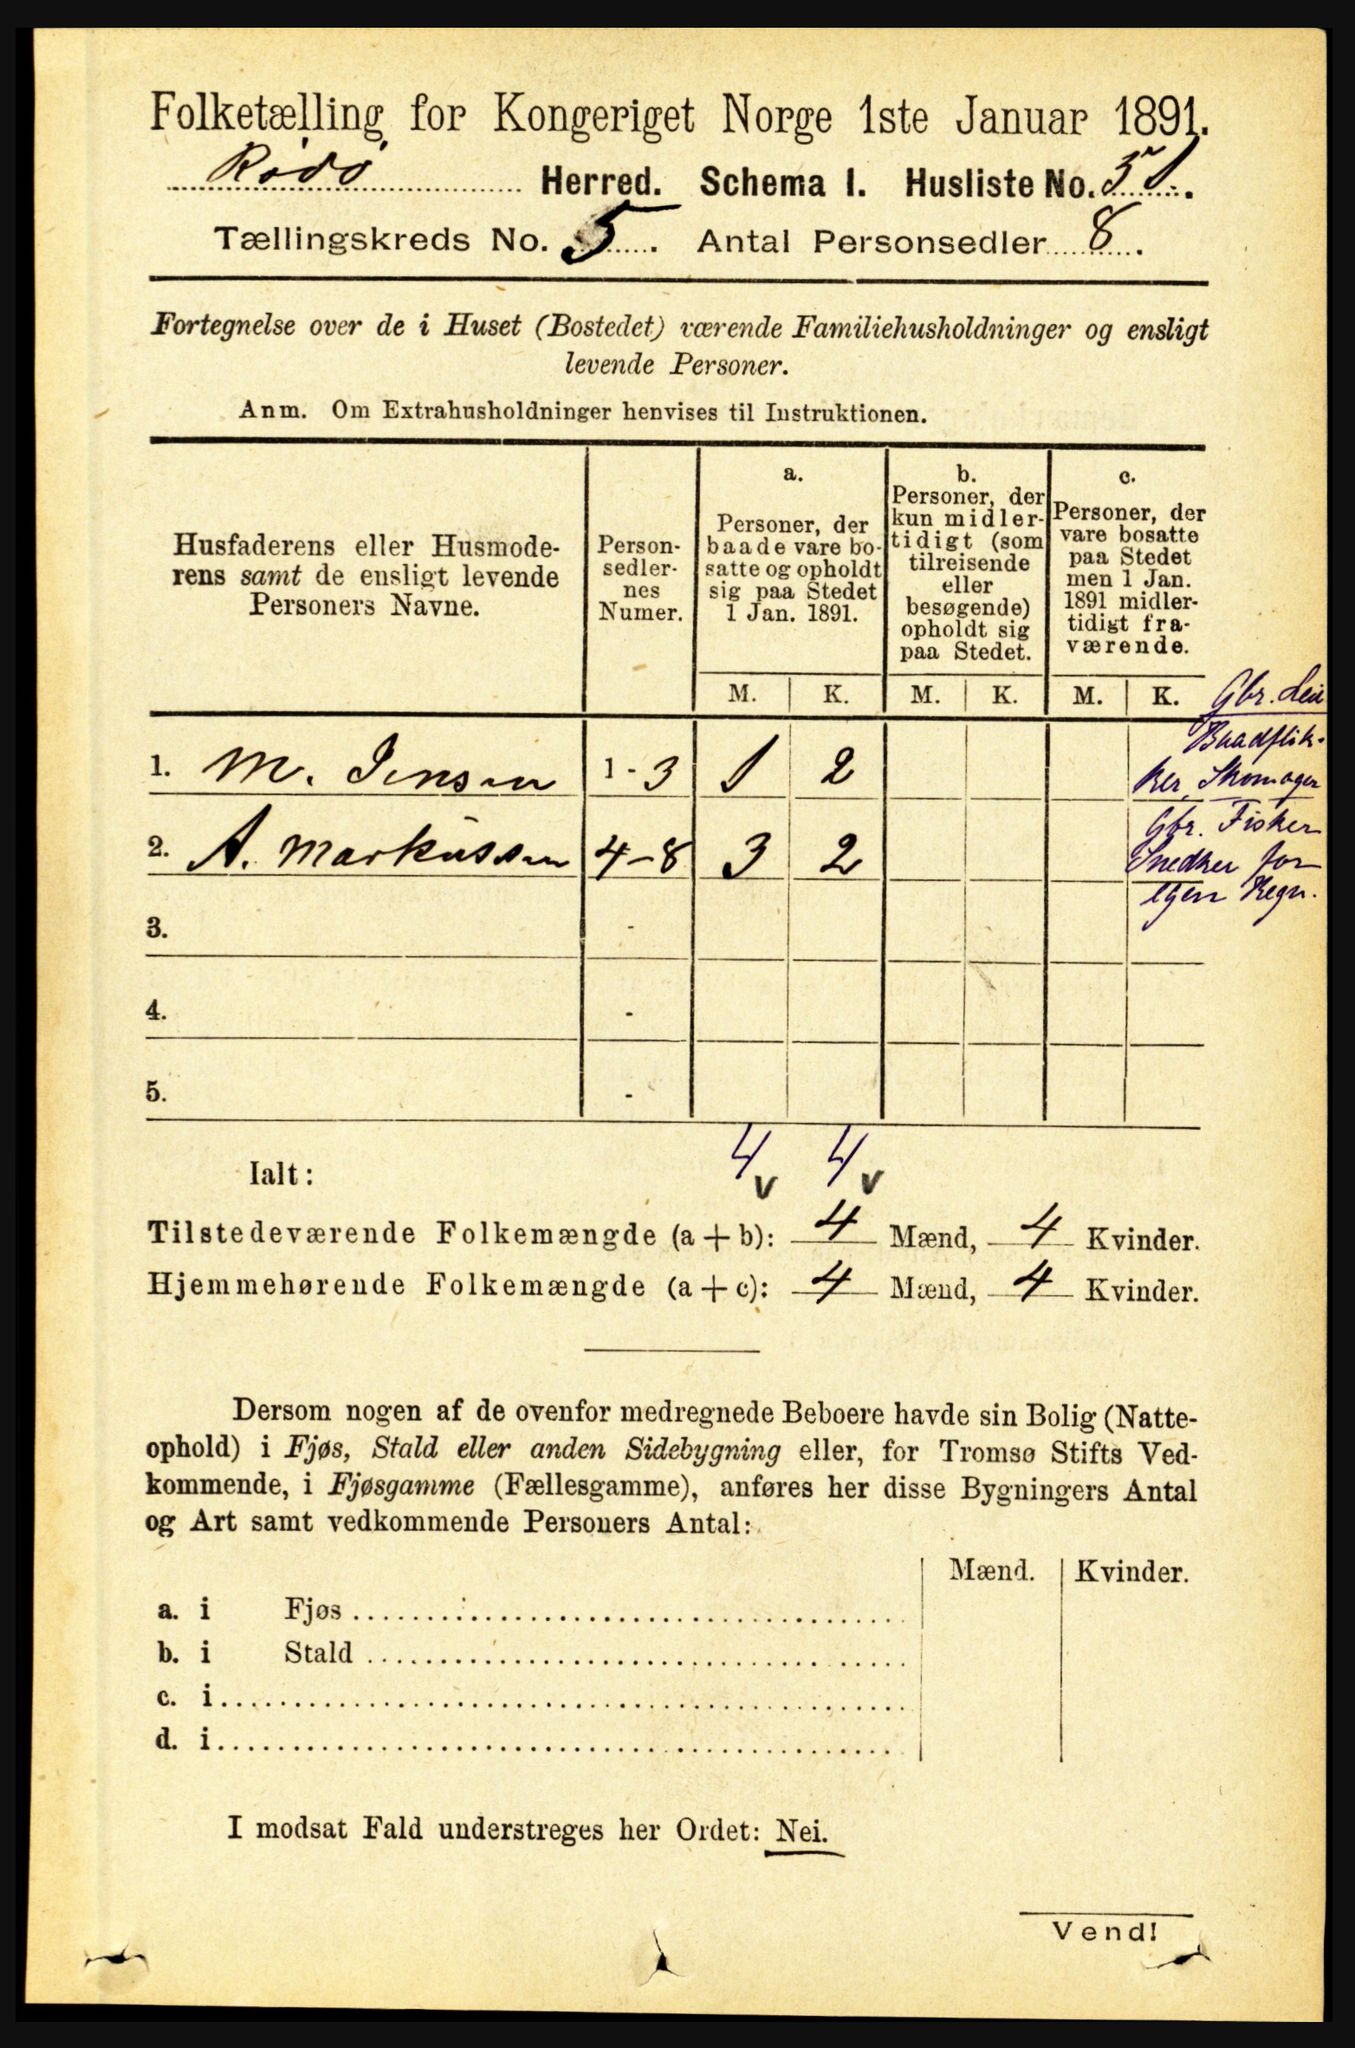 Folketælling for Kongeriget Norge 1ste Januar 1891.
Rödö Herred. Schema I. Husliste No. 51.
Tællingskreds No. 5. Antal Personsedler 8.
Fortegnelse over de i Huset (Bostedet) værende Familiehusholdninger og ensligt
levende Personer.
Anm. Om Extrahusholdninger henvises til Instruktionen.
Husfaderens eller Husmode-
rens samt de ensligt levende
Personers Navne.
Person-
sedler-
nes
Numer.
a.
Personer, der
baade vare bo-
satte og opholdt
sig paa Stedet
1 Jan. 1891.
b.
Personer, der
kun midler-
tidigt (som
tilreisende
eller
besøgende)
opholdt sig
paa Stedet.
c.
Personer, der
vare bosatte
paa Stedet
men 1 Jan.
1891 midler-
tidigt fra-
værende.
M. K. M. K. M. K.
Gbr. Lei
Baadflik-
ker, Skomager
1. M. Jensen 1-3 1 2
Gbr. Fisker
Snedker for
egen Regn.
2. A. Markussen 4-8 3 2
3. -
4. -
5. -
4 v 4 v
Ialt:
Tilstedeværende Folkemængde (a + b): 4 Mænd, 4 Kvinder.
Hjemmehørende Folkemængde (a + c): 4 Mænd, 4 Kvinder.
Dersom nogen af de ovenfor medregnede Beboere havde sin Bolig (Natte-
ophold) i Fjøs, Stald eller anden Sidebygning eller, for Tromsø Stifts Ved-
kommende, i Fjøsgamme (Fællesgamme), anføres her disse Bygningers Antal
og Art samt vedkommende Personers Antal:
Mænd. Kvinder.
a. i Fjøs
b. i Stald
c. i
d. i
I modsat Fald understreges her Ordet: Nei.
Vend!